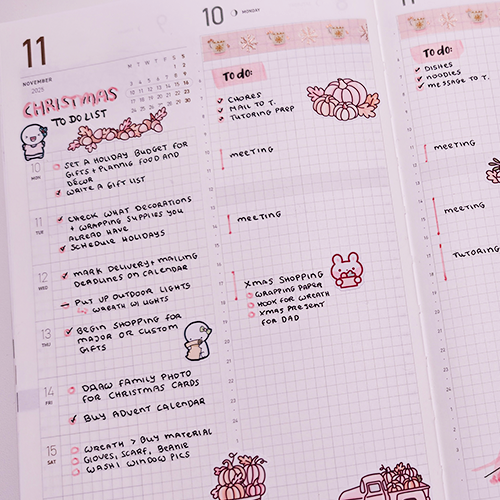 11
NOVEMBER
2025
M T W T F S S
CHRISTMAS
TO DO LIST
10
MON
SET A HOLIDAY BUDGET FOR
GIFTS + PLANNIG FOOD AND
DÉCOR
WRITE A GIFT LIST
11
TUE
CHECK WHAT DECORATIONS
+ WRAPPING SUPPLIES YOU
ALREAD HAVE
SCHEDULE HOLIDAYS
12
WED
MARK DELIVERY + MAILING
DEADLINES ON CALENDAR
PUT UP OUTDOOR LIGHTS
WREATH W/ LIGHTS
13
THU
BEGIN SHOPPING FOR
MAJOR OR CUSTOM
GIFTS
14
FRI
DRAW FAMILY PHOTO
FOR CHRISTMAS CARDS
BUY ADVENT CALENDAR
15
SAT
WREATH > BUY MATERIAL
GLOVES, SCARF, BEANIE
WASHI WINDOW PICS
10
MONDAY
TO DO:
CHORES
MAIL TO T.
TUTORING PREP
MEETING
MEETING
XMAS SHOPPING
WRAPPING PAPER
HOOK FOR WREATH
XMAS PRESENT
FOR DAD
11
TO DO:
DISHES
NOODLES
MESSAGE TO T.
MEETING
MEETING
TUTORING